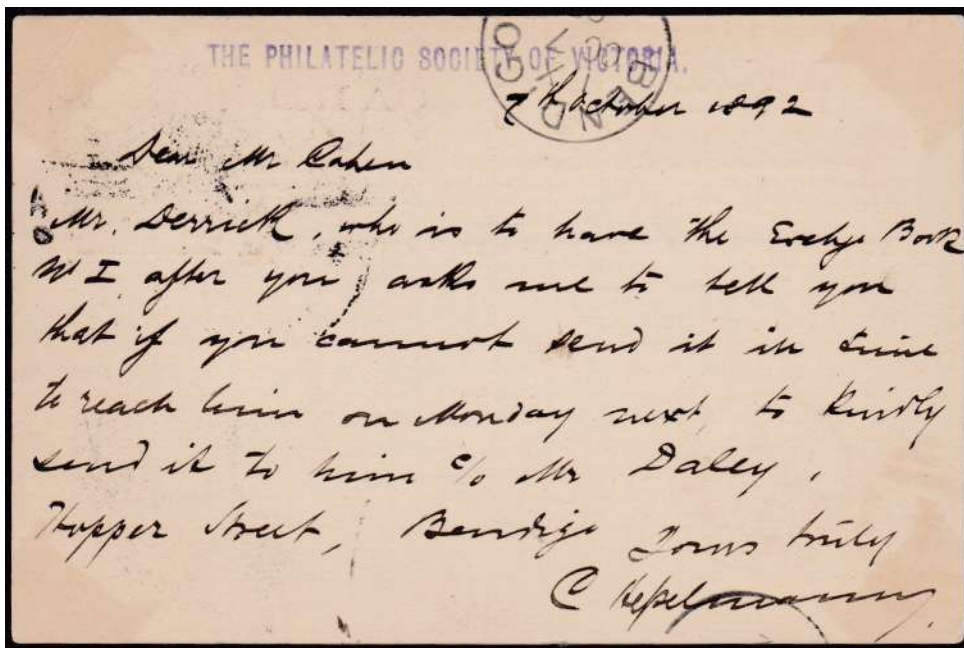 THE PHILATELIC SOCIETY OF VICTORIA.
BENDIGO
7th October 1892
Dear Mr Cohen
Mr. Derrick, who is to have the Exchge Book
No I after you asks me to tell you
that if you cannot send it in time
to reach him on Monday next, to kindly
send it to him c/o Mr Daley,
Hopper Street, Bendigo
Yours truly
C